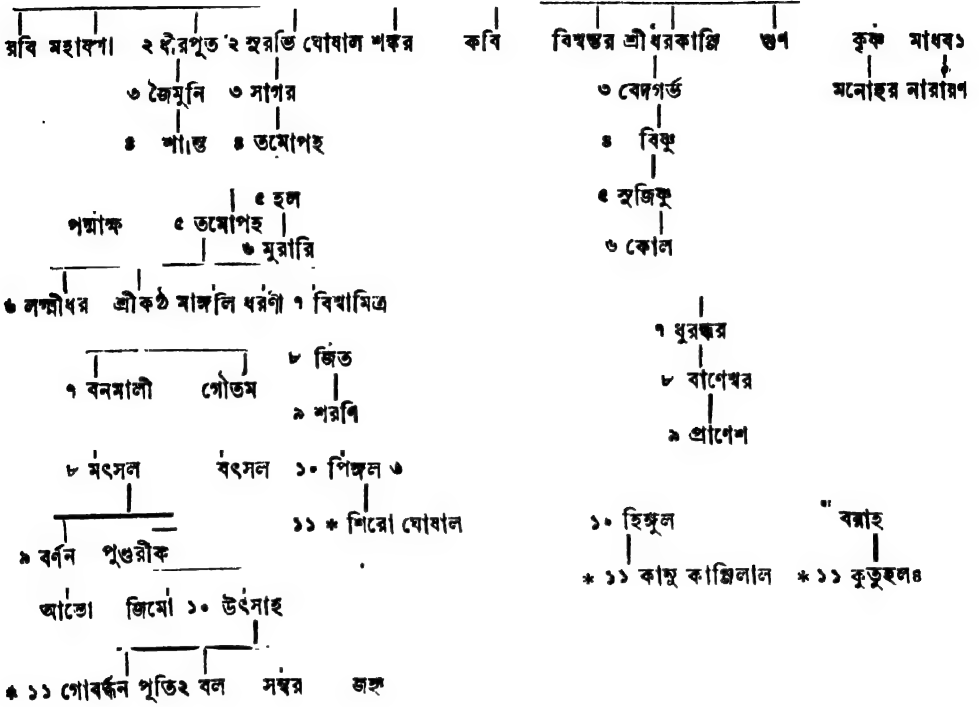 রবি মহাযশা ২ ধীরপূত ২ সুরভি ঘোষাল শঙ্কর কবি বিশ্বম্ভর শ্রীধরকাঞ্জি গুণ কৃষ্ণ মাধব১
৩ জৈমুনি ৩ সাগর ৩ বেদগর্ভ মনোহর নারায়ণ
৪ শান্ত ৪ তমোপহ ৪ বিষ্ণু
৫ হল ৫ সুজিষ্ণু
পদ্মাক্ষ ৫ তমোপহ
৬ মুরারি ৬ কোল
৬ লক্ষ্মীধর শ্রীকণ্ঠ মাঙ্গলি ধরণী ৭ বিশ্বামিত্র
৭ ধুরন্ধর
৮ জিত
৭ বনমালী গৌতম ৮ বাণেশ্বর
৯ শরণি
৯ প্রাণেশ
৮ মৎসল বৎসল ১০ পিঙ্গল ৩
১১ * শিরো ঘোষাল ১০ হিঙ্গুল " বরাহ
৯ বর্ণন পুণ্ডরীক
* ১১ কানু কাঞ্জিলাল * ১১ কুতুহল৪
আভো জিমো ১০ উৎসাহ
* ১১ গোবর্দ্ধন পূতি২ বল সম্বর জহ্ন